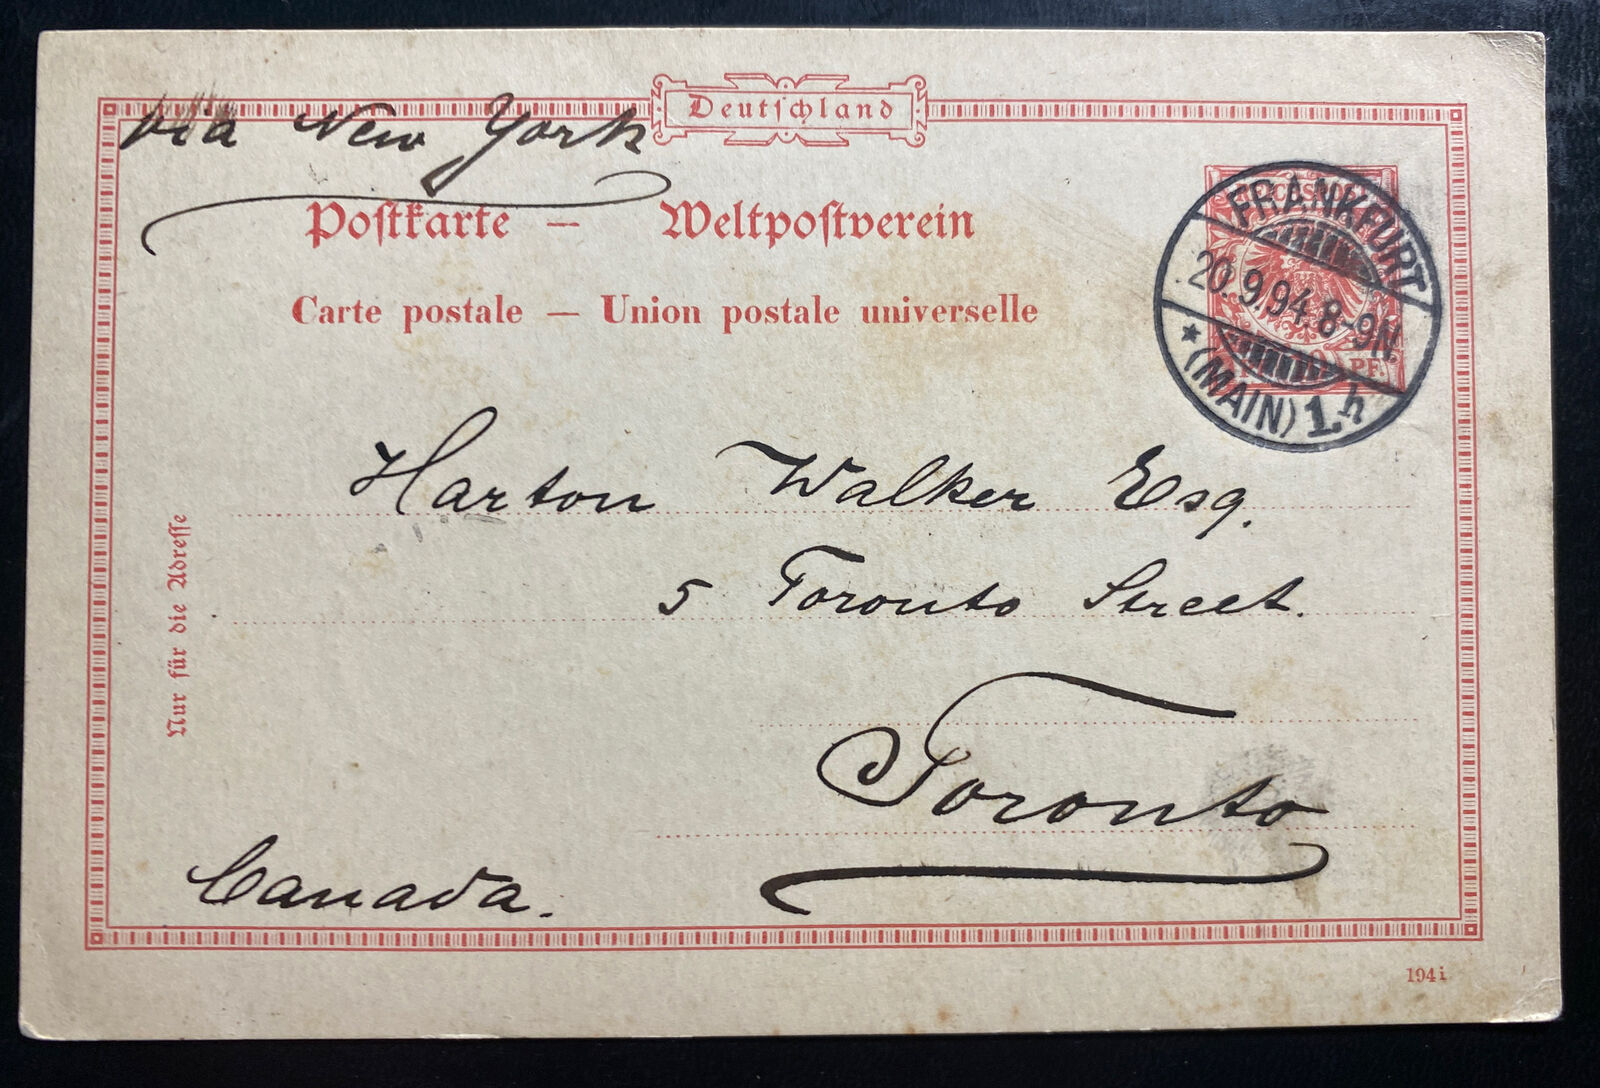 Deutschland
via New York
Postkarte — Weltpostverein
Carte postale — Union postale universelle
FRANKFURT
20.9.94.8-9N.
* (MAIN) 1.h
PF.
Harton Walker Esq.
5 Toronto Street.
Toronto
Canada.
Nur für die Adresse
194i